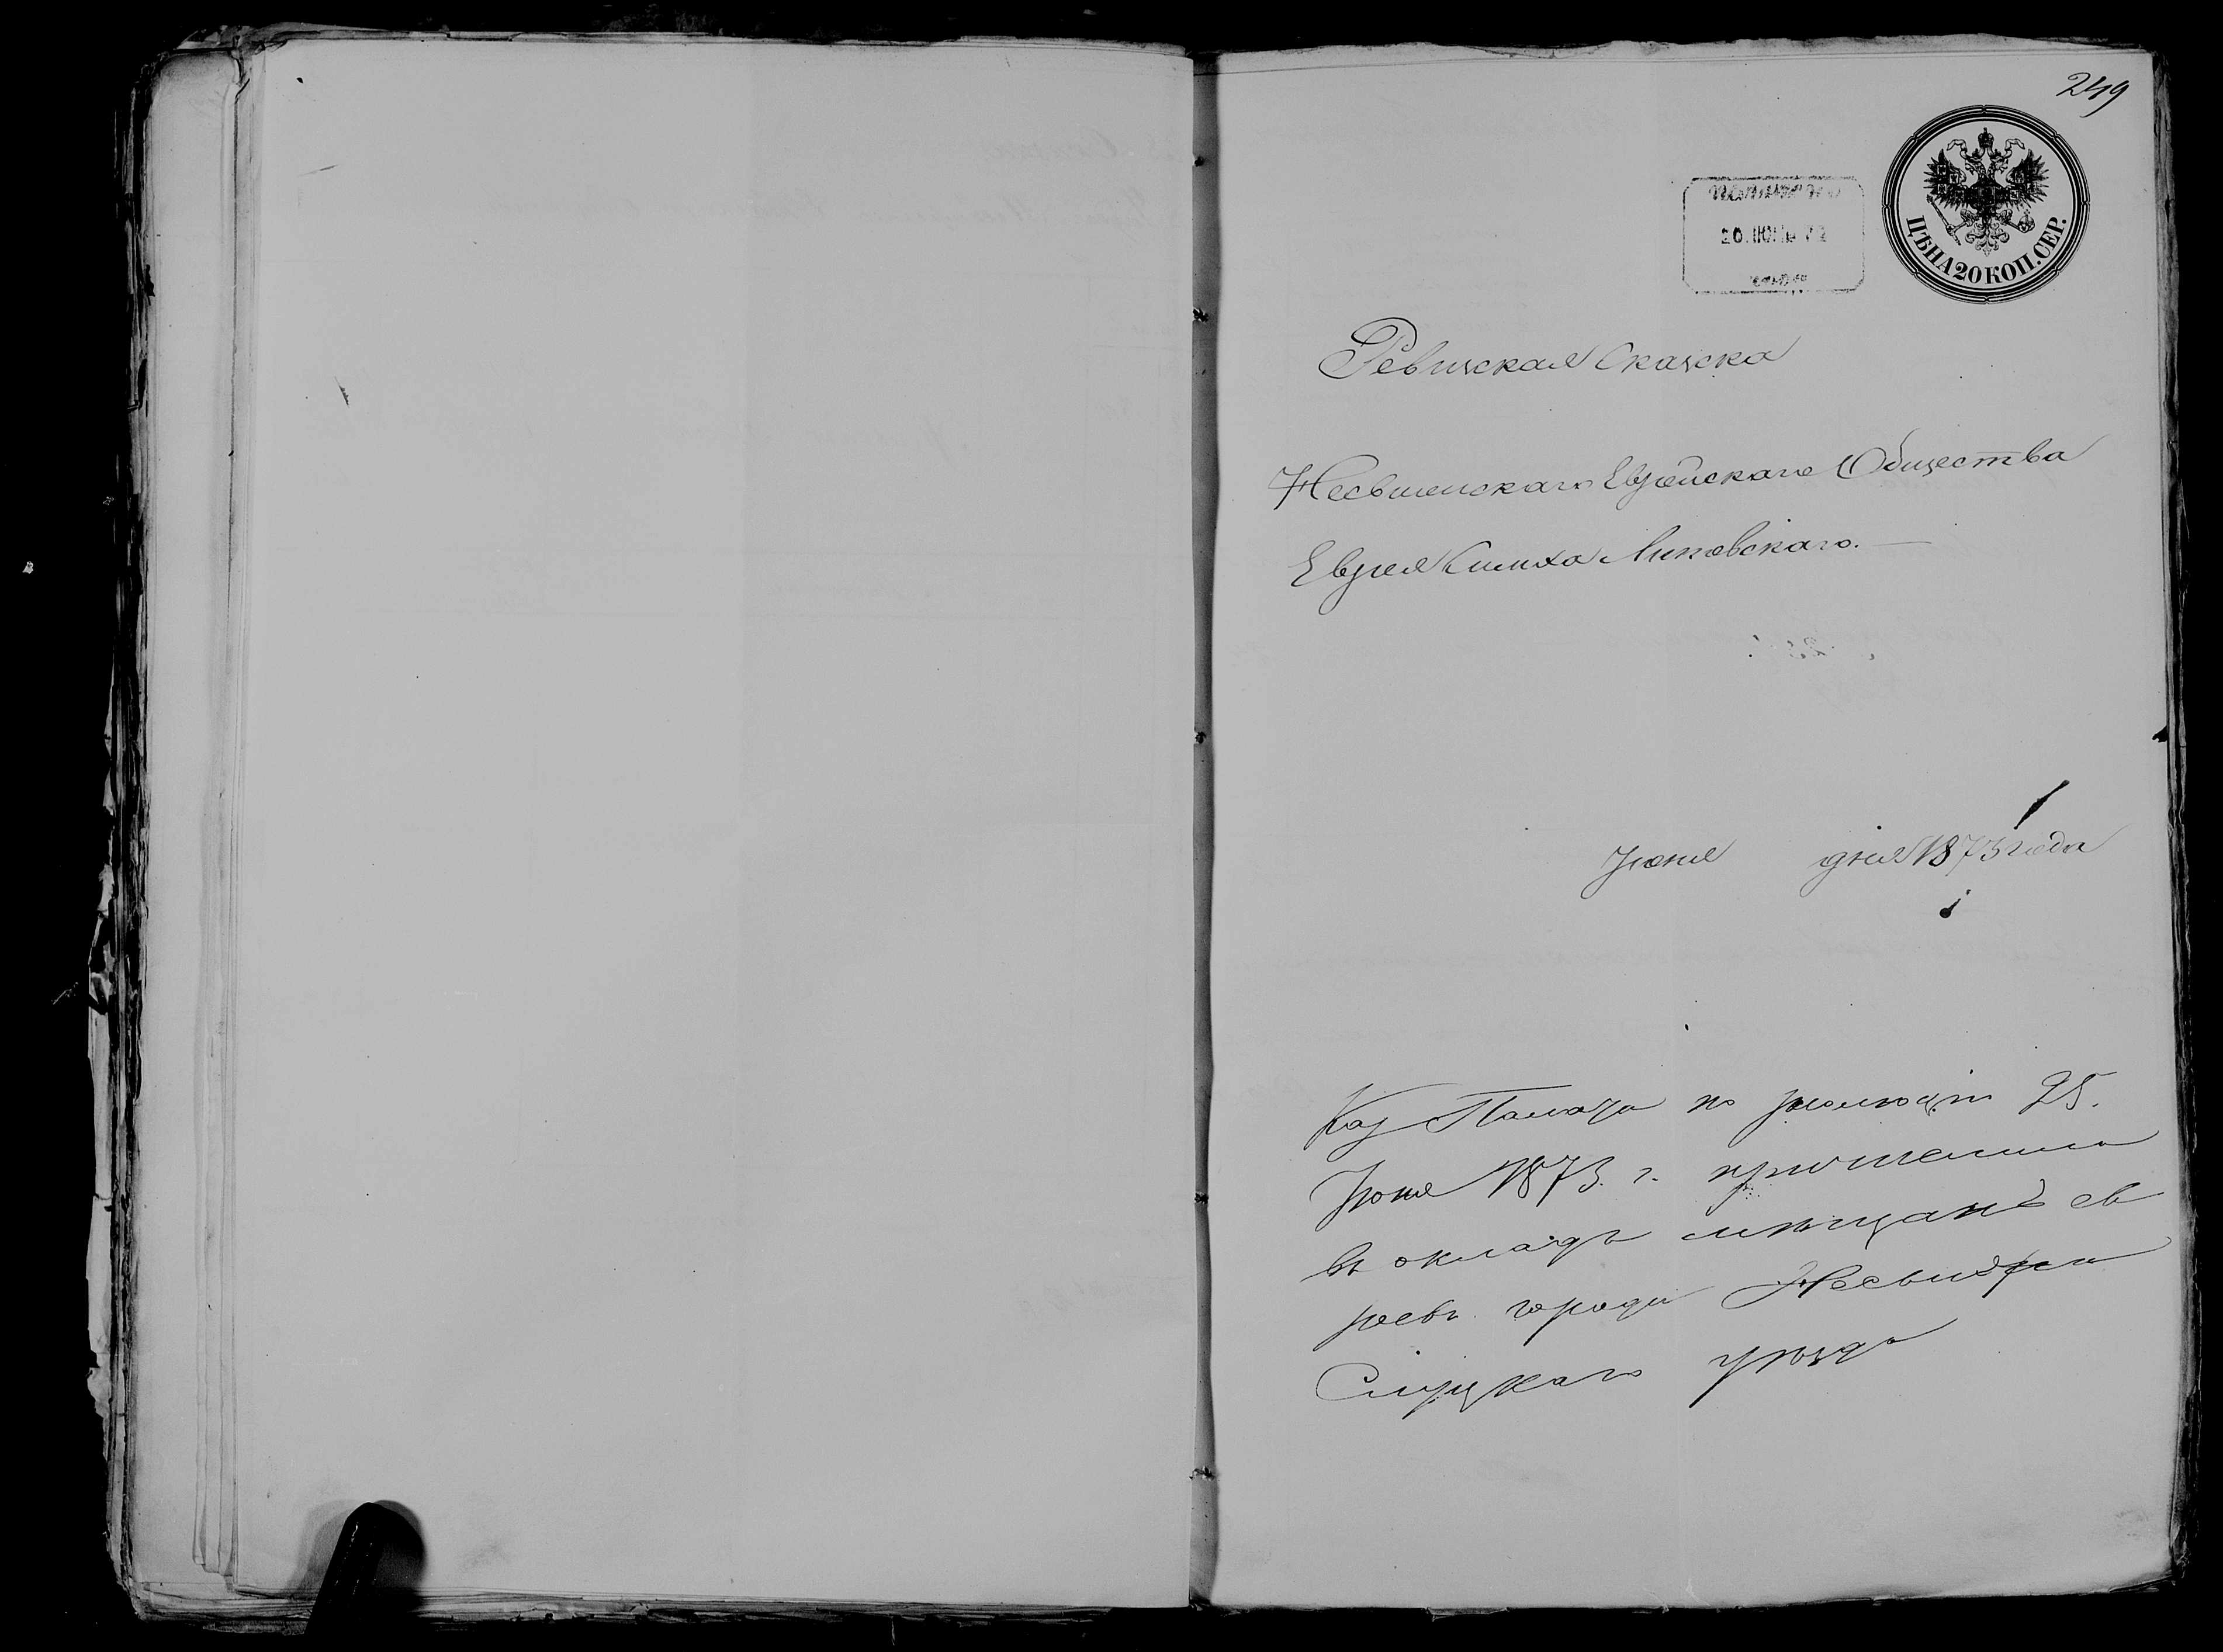 249
ЦѢНА 20 КОП. СЕР.
20 ІЮН
Ревизская Сказка
Несвижскаго Еврейскаго Общества
Еврея Симха Липовскаго.
Іюня дня 1873 года
Каз Палата по резолюціи 25.
Іюня 1873. г. причислила
въ окладъ мѣщанъ ев
реевъ города Несвижа
Слуцкаго уѣзда